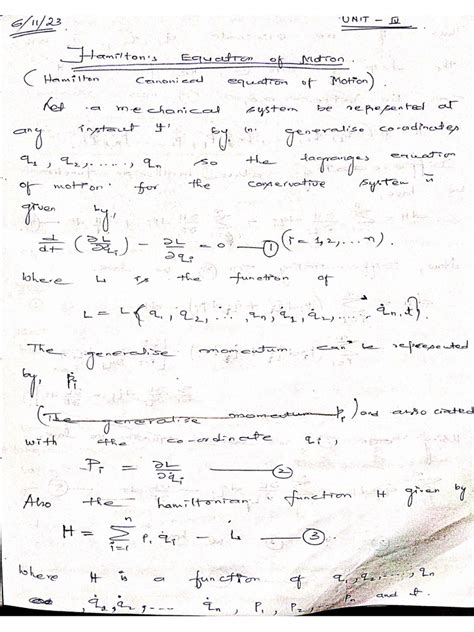 6/11/23 UNIT - III
Hamilton's Equation of Motion.
(Hamilton Canonical equation of Motion).
Let a mechanical system be represented at
any instant 't' by 'n' generalise co-ordinates
q₁, q₂, ....., qₙ so the lagranges equation
of motion for the conservative system is
given by,
d/dt (∂L/∂q̇ᵢ) - ∂L/∂qᵢ = 0 — ① (i = 1,2,...n).
Where L is the function of
L = L{q₁, q₂, ..., qₙ, q̇₁, q̇₂, ..... q̇ₙ, t}.
The generalise momentum can be represented
by, Pᵢ
(The generalise momentum Pᵢ) and associated
with the co-ordinate qᵢ,
Pᵢ = ∂L/∂q̇ᵢ — ②
Also the hamiltonian function H given by
H = Σⁿᵢ₌₁ Pᵢ q̇ᵢ - L — ③
Where H is a function of q₁, q₂, ..., qₙ
q̇₁, q̇₂, ... q̇ₙ, P₁, P₂, ... Pₙ and t.